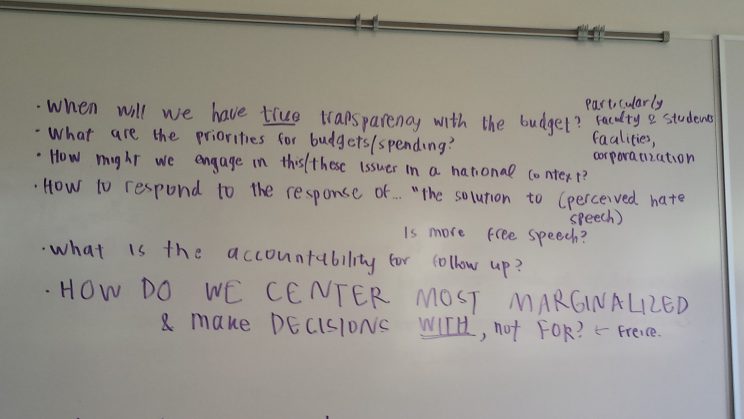 · When will we have true transparency with the budget? particularly
· What are the priorities for budgets/spending? faculty & students
· How might we engage in this/these issues in a national context? facilities,
corporatization
· How to respond to the response of... "the solution to (perceived hate
speech)
Is more free speech?
· What is the accountability for follow up?
· HOW DO WE CENTER MOST MARGINALIZED
& make DECISIONS WITH, not FOR? ← Freire.